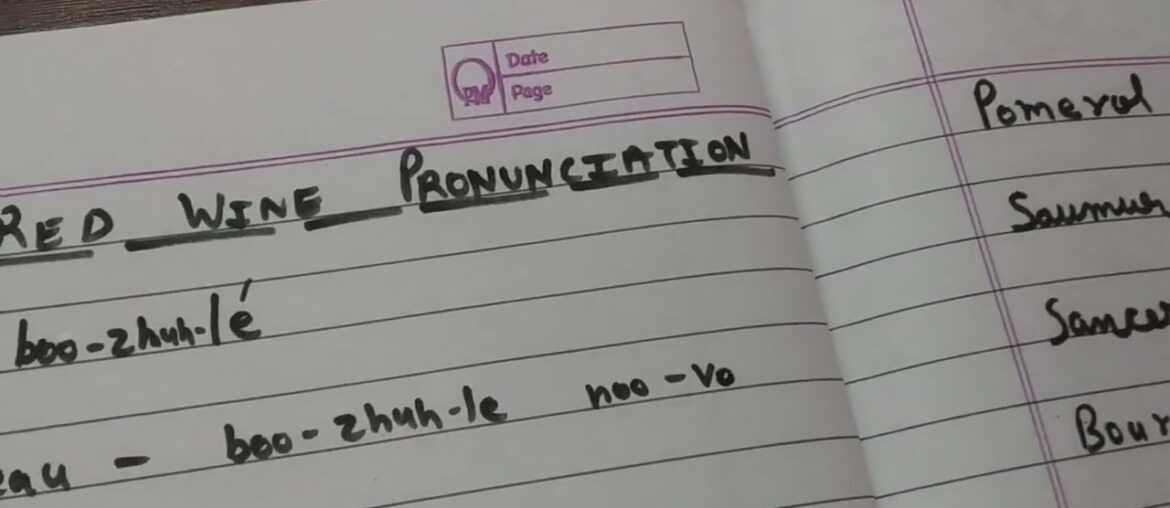 PM
Date
Page
RED WINE PRONUNCIATION
boo-zhuh-lé
eau - boo-zhuh-le noo-vo
Pomerol
Saumur
Sancer
Bour